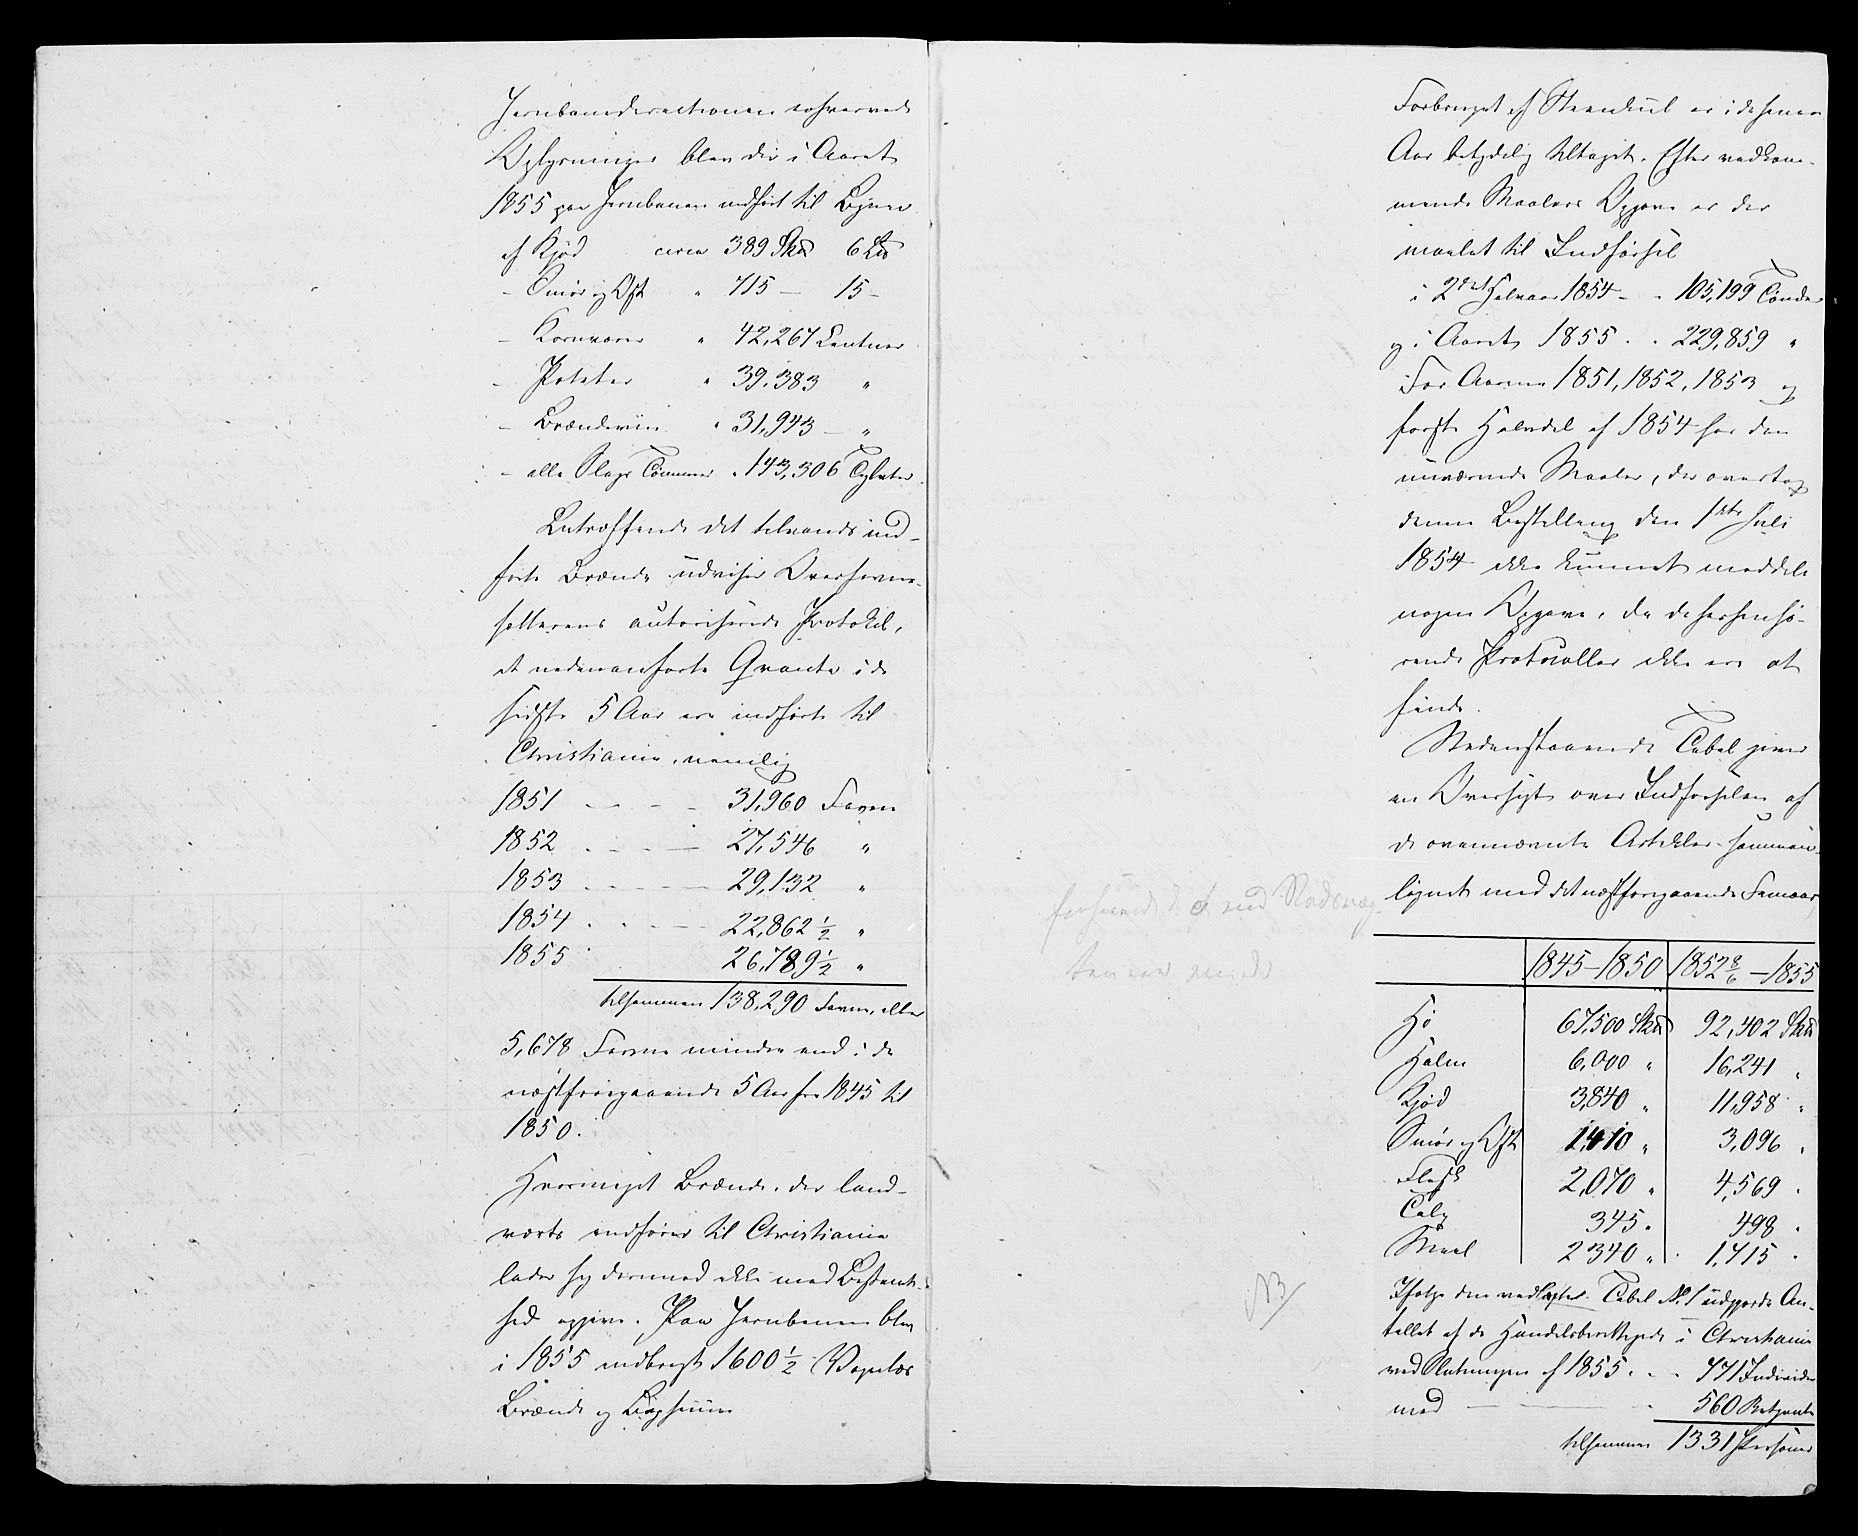 Jernbanedirectionen erhvervede
Oplysninger blev der i Aaret
1855 paa Jernbanen indført til Byen
af Kjød circa 389 Sk℔ 6 L℔
- Smør og Ost " 715 — 15 -
- Kornvarer " 42,267 Centner
- Poteter " 39,383 "
- Brændeviin " 31,943 — "
- alle Slags Tømmer " 143,306 Tylvter
Betræffende det tilvands ind-
førte Brænde udviser Overfavne-
sætterens autoriserede Protokol,
at nedenanførte Qvanta i de
sidste 5 Aar ere indførte til
Christiania, nemlig
1851 - - - - 31,960 Favne
1852 - - - - 27,546 "
1853 - - - - 29,132 "
1854 - - - - 22,862 1/2 "
1855 26,789 1/2 "
tilsammen 138,290 Favne, eller
5,678 Favne mindre end i de
næstforegaaende 5 Aar fra 1845 til
1850.
Hvormeget Brænde, der land-
værts indføres til Christiania
lader sig derimod ikke med Bestemt-
hed opgive. Paa Jernbanen blev
i 1855 indbragt 1600 1/2 Vognlæs
Brænde og
Forbruget af Steenkul er i de senere
Aar betydelig tiltaget. Efter vedkom-
mende Maalers Opgave er der
maalet til Indførsel
i 2det Halvaar 1854 - - 105,199 Tønder
og i Aaret 1855 . . 229,859 "
For Aarene 1851, 1852, 1853 og
første Halvdel af 1854 har den
nuværende Maaler, der overtog
denne Bestilling den 1ste Juli
1854 ikke kunnet meddele
nogen Opgave, da de herhenhø-
rende Protocoller ikke ere at
finde.
Nedenstaaende Tabel giver
en Oversigt over Indførselen af
de ovennævnte Artikler sammen-
lignet med det næstforegaaende Femaar
1845-1850 1852 8/6 - 1855
Hø 67,500 Sk℔ 92,402 Sk℔
Halm 6,000 " 16,241 "
Kjød 3,840 " 11,958 "
Smør og Ost 1,410 " 3,096 "
Flesk 2,070 " 4,569 "
Talg 345 " 498 "
Meel 2340 " 1,415 "
Ifølge den vedlagte Tabel No. 1 udgjorde An-
tallet af de Handelsberettigede i Christiania
ved Slutningen af 1855 . - - 771 Individer
med — — 560 Betjente
tilsammen 1331 Personer
NB/